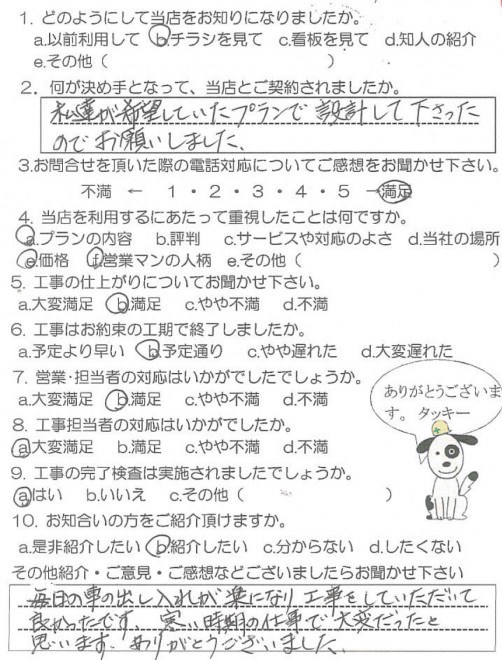 1. どのようにして当店をお知りになりましたか。
a.以前利用して b.チラシを見て c.看板を見て d.知人の紹介
e.その他（　　　　　　　　　　）
2. 何が決め手となって、当店とご契約されましたか。
私達が希望していたプランで設計して下さった
のでお願いしました。
3.お問合せを頂いた際の電話対応についてご感想をお聞かせ下さい。
不満 ← 1・2・3・4・5 →満足
4. 当店を利用するにあたって重視したことは何ですか。
a.プランの内容 b.評判 c.サービスや対応のよさ d.当社の場所
e.価格 f.営業マンの人柄 e.その他（　　　　　　　　　　）
5. 工事の仕上がりについてお聞かせ下さい。
a.大変満足 b.満足 c.やや不満 d.不満
6. 工事はお約束の工期で終了しましたか。
a.予定より早い b.予定通り c.やや遅れた d.大変遅れた
7. 営業・担当者の対応はいかがでしたでしょうか。
a.大変満足 b.満足 c.やや不満 d.不満
ありがとうございま
す。 タッキー
8. 工事担当者の対応はいかがでしたか。
a.大変満足 b.満足 c.やや不満 d.不満
9. 工事の完了検査は実施されましたでしょうか。
a.はい b.いいえ c.その他（　　　　　　　　）
10. お知合いの方をご紹介頂けますか。
a.是非紹介したい b.紹介したい c.分からない d.したくない
その他紹介・ご意見・ご感想などございましたらお聞かせ下さい
毎日の車の出し入れが楽になり工事をしていただいて
良かったです。寒い時期の仕事で大変だったと
思います。ありがとうございました。